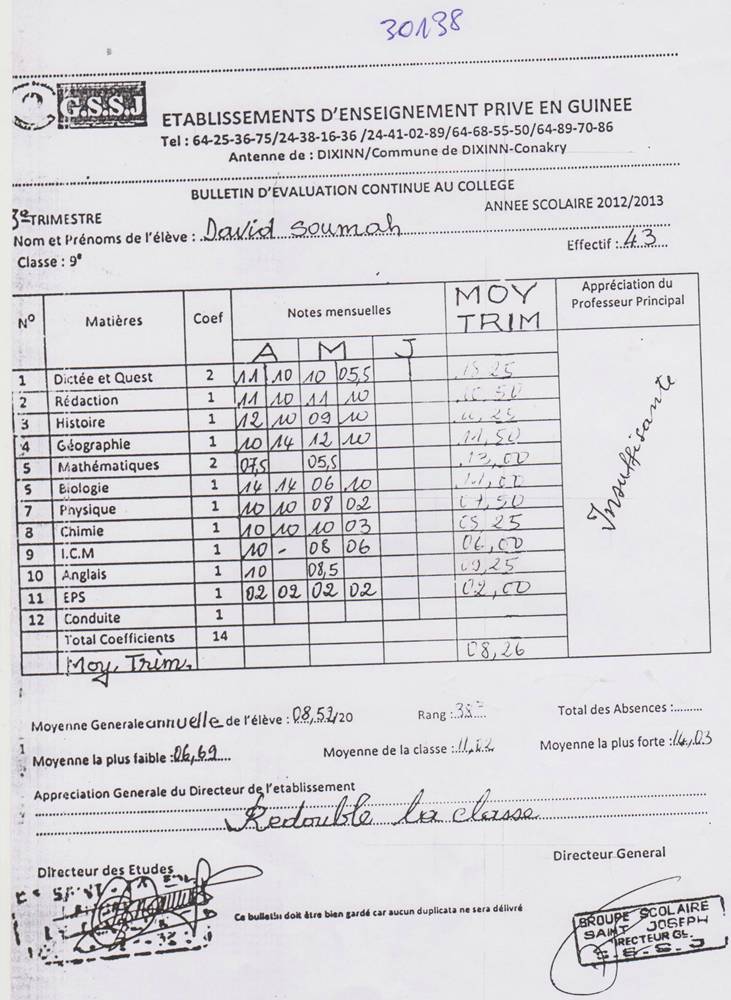 30138
G.S.S.J
ETABLISSEMENTS D'ENSEIGNEMENT PRIVE EN GUINEE
Tel : 64-25-36-75/24-38-16-36 /24-41-02-89/64-68-55-50/64-89-70-86
Antenne de : DIXINN/Commune de DIXINN-Conakry
BULLETIN D'EVALUATION CONTINUE AU COLLEGE
3e TRIMESTRE ANNEE SCOLAIRE 2012/2013
Nom et Prénoms de l'élève : David Soumah Effectif : 43
Classe : 9e
N° Matières Coef Notes mensuelles MOY TRIM Appréciation du Professeur Principal
A M J
1 Dictée et Quest 2 11 10 10 05,5
2 Rédaction 1 11 10 11 10
3 Histoire 1 12 10 09 10
4 Géographie 1 10 14 12 10 11,50
5 Mathématiques 2 07,5 05,5 13,00
5 Biologie 1 14 14 06 10 11,00
7 Physique 1 10 10 08 02 07,50
8 Chimie 1 10 10 10 03 25
9 I.C.M 1 10 - 08 06 06,00
10 Anglais 1 10 08,5 09,25
11 EPS 1 02 02 02 02 02,00
12 Conduite 1
Total Coefficients 14
Moy, Trim, 08,26
Insuffisante
Moyenne Generale annuelle de l'élève : 08,53/20 Rang : 38e Total des Absences :
Moyenne la plus faible : 06,69 Moyenne de la classe : 11,02 Moyenne la plus forte : 14,03
Appreciation Generale du Directeur de l'etablissement
Redouble la classe
Directeur des Etudes Directeur General
Ce bulletin doit être bien gardé car aucun duplicata ne sera délivré
GROUPE SCOLAIRE
SAINT JOSEPH
DIRECTEUR GL.
G.S.S.J